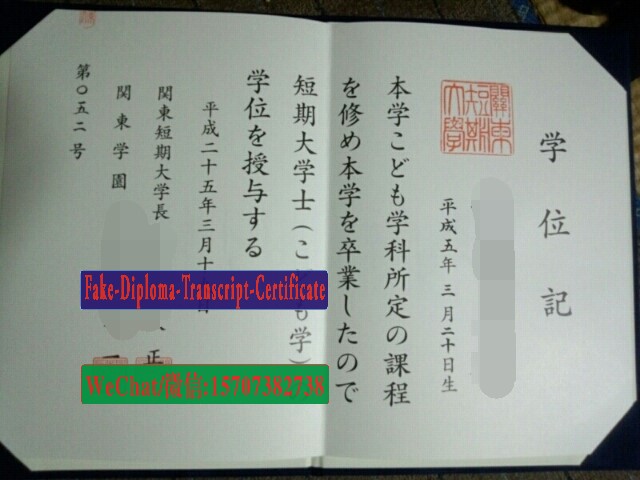 学位記
平成五年三月二十日生
關東
短期
大學
本学こども学科所定の課程
を修め本学を卒業したので
短期大学士(こども学)
学位を授与する
平成二十五年三月十
関東短期大学長
正
関東学園
第〇五二号
Fake-Diploma-Transcript-Certificate
WeChat/微信:15707382738